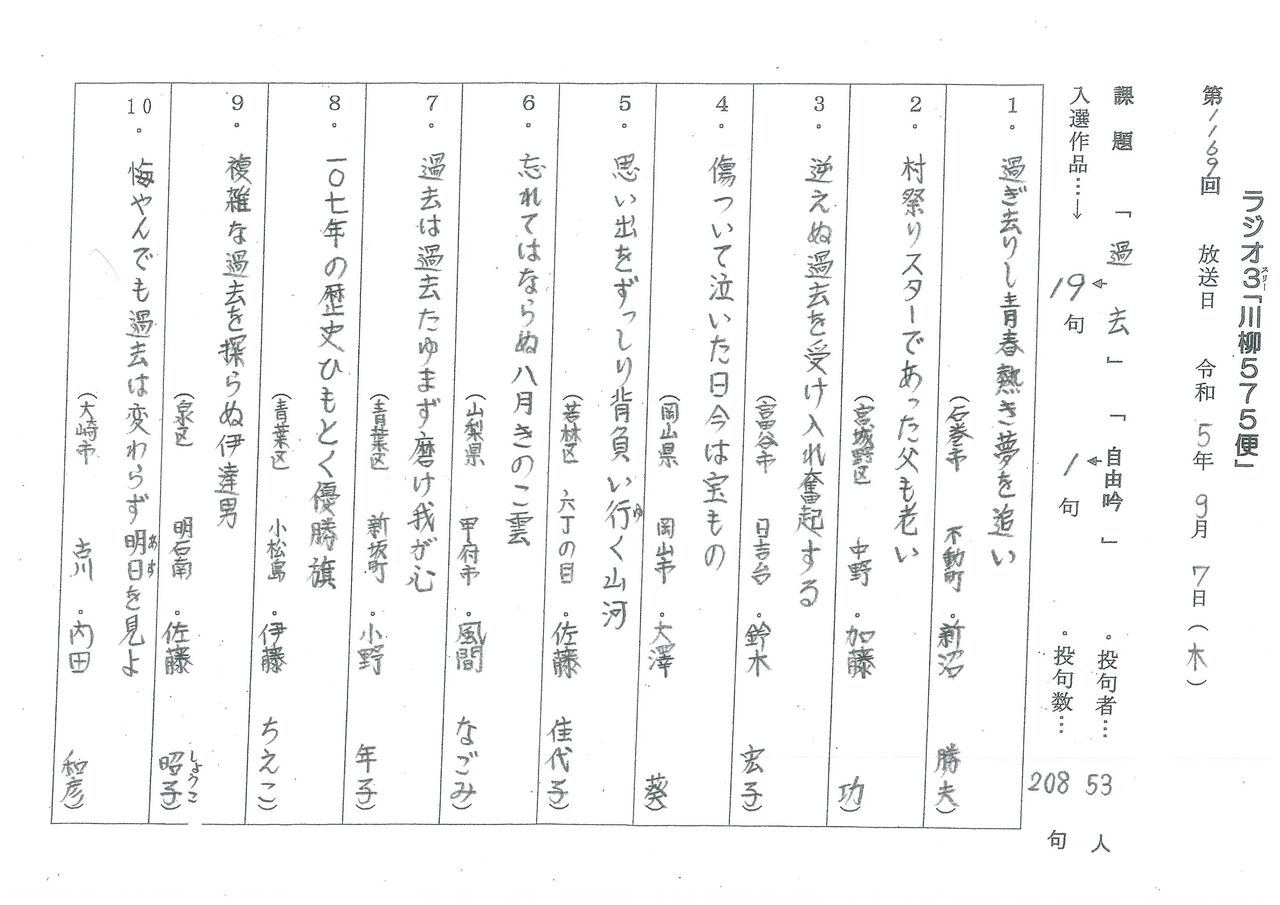 ラジオ3「川柳575便」
スリー
第1169回 放送日 令和5年9月7日(木)
課題 「過去」 「自由吟」 ・投句者… 53人
入選作品…→ 19句 1句 ・投句数… 208句
1. 過ぎ去りし青春熱き夢を追い
(石巻市 不動町・新沼 勝夫)
2. 村祭りスターであった父も老い
(宮城野区 中野・加藤 功)
3. 逆えぬ過去を受け入れ奮起する
(富谷市 日吉台・鈴木 宏子)
4. 傷ついて泣いた日今は宝もの
(岡山県 岡山市・大澤 葵)
5. 思い出をずっしり背負い行く山河
ゆ
(若林区 六丁の目・佐藤 佳代子)
6. 忘れてはならぬ八月きのこ雲
(山梨県 甲府市・風間 なごみ)
7. 過去は過去たゆまず磨け我が心
(青葉区 新坂町・小野 年子)
8. 一〇七年の歴史ひもとく優勝旗
(青葉区 小松島・伊藤 ちえこ)
9. 複雑な過去を探らぬ伊達男
(泉区 明石南・佐藤 昭子)
しょうこ
10. 悔やんでも過去は変わらず明日を見よ
あす
(大崎市 古川・内田 和彦)